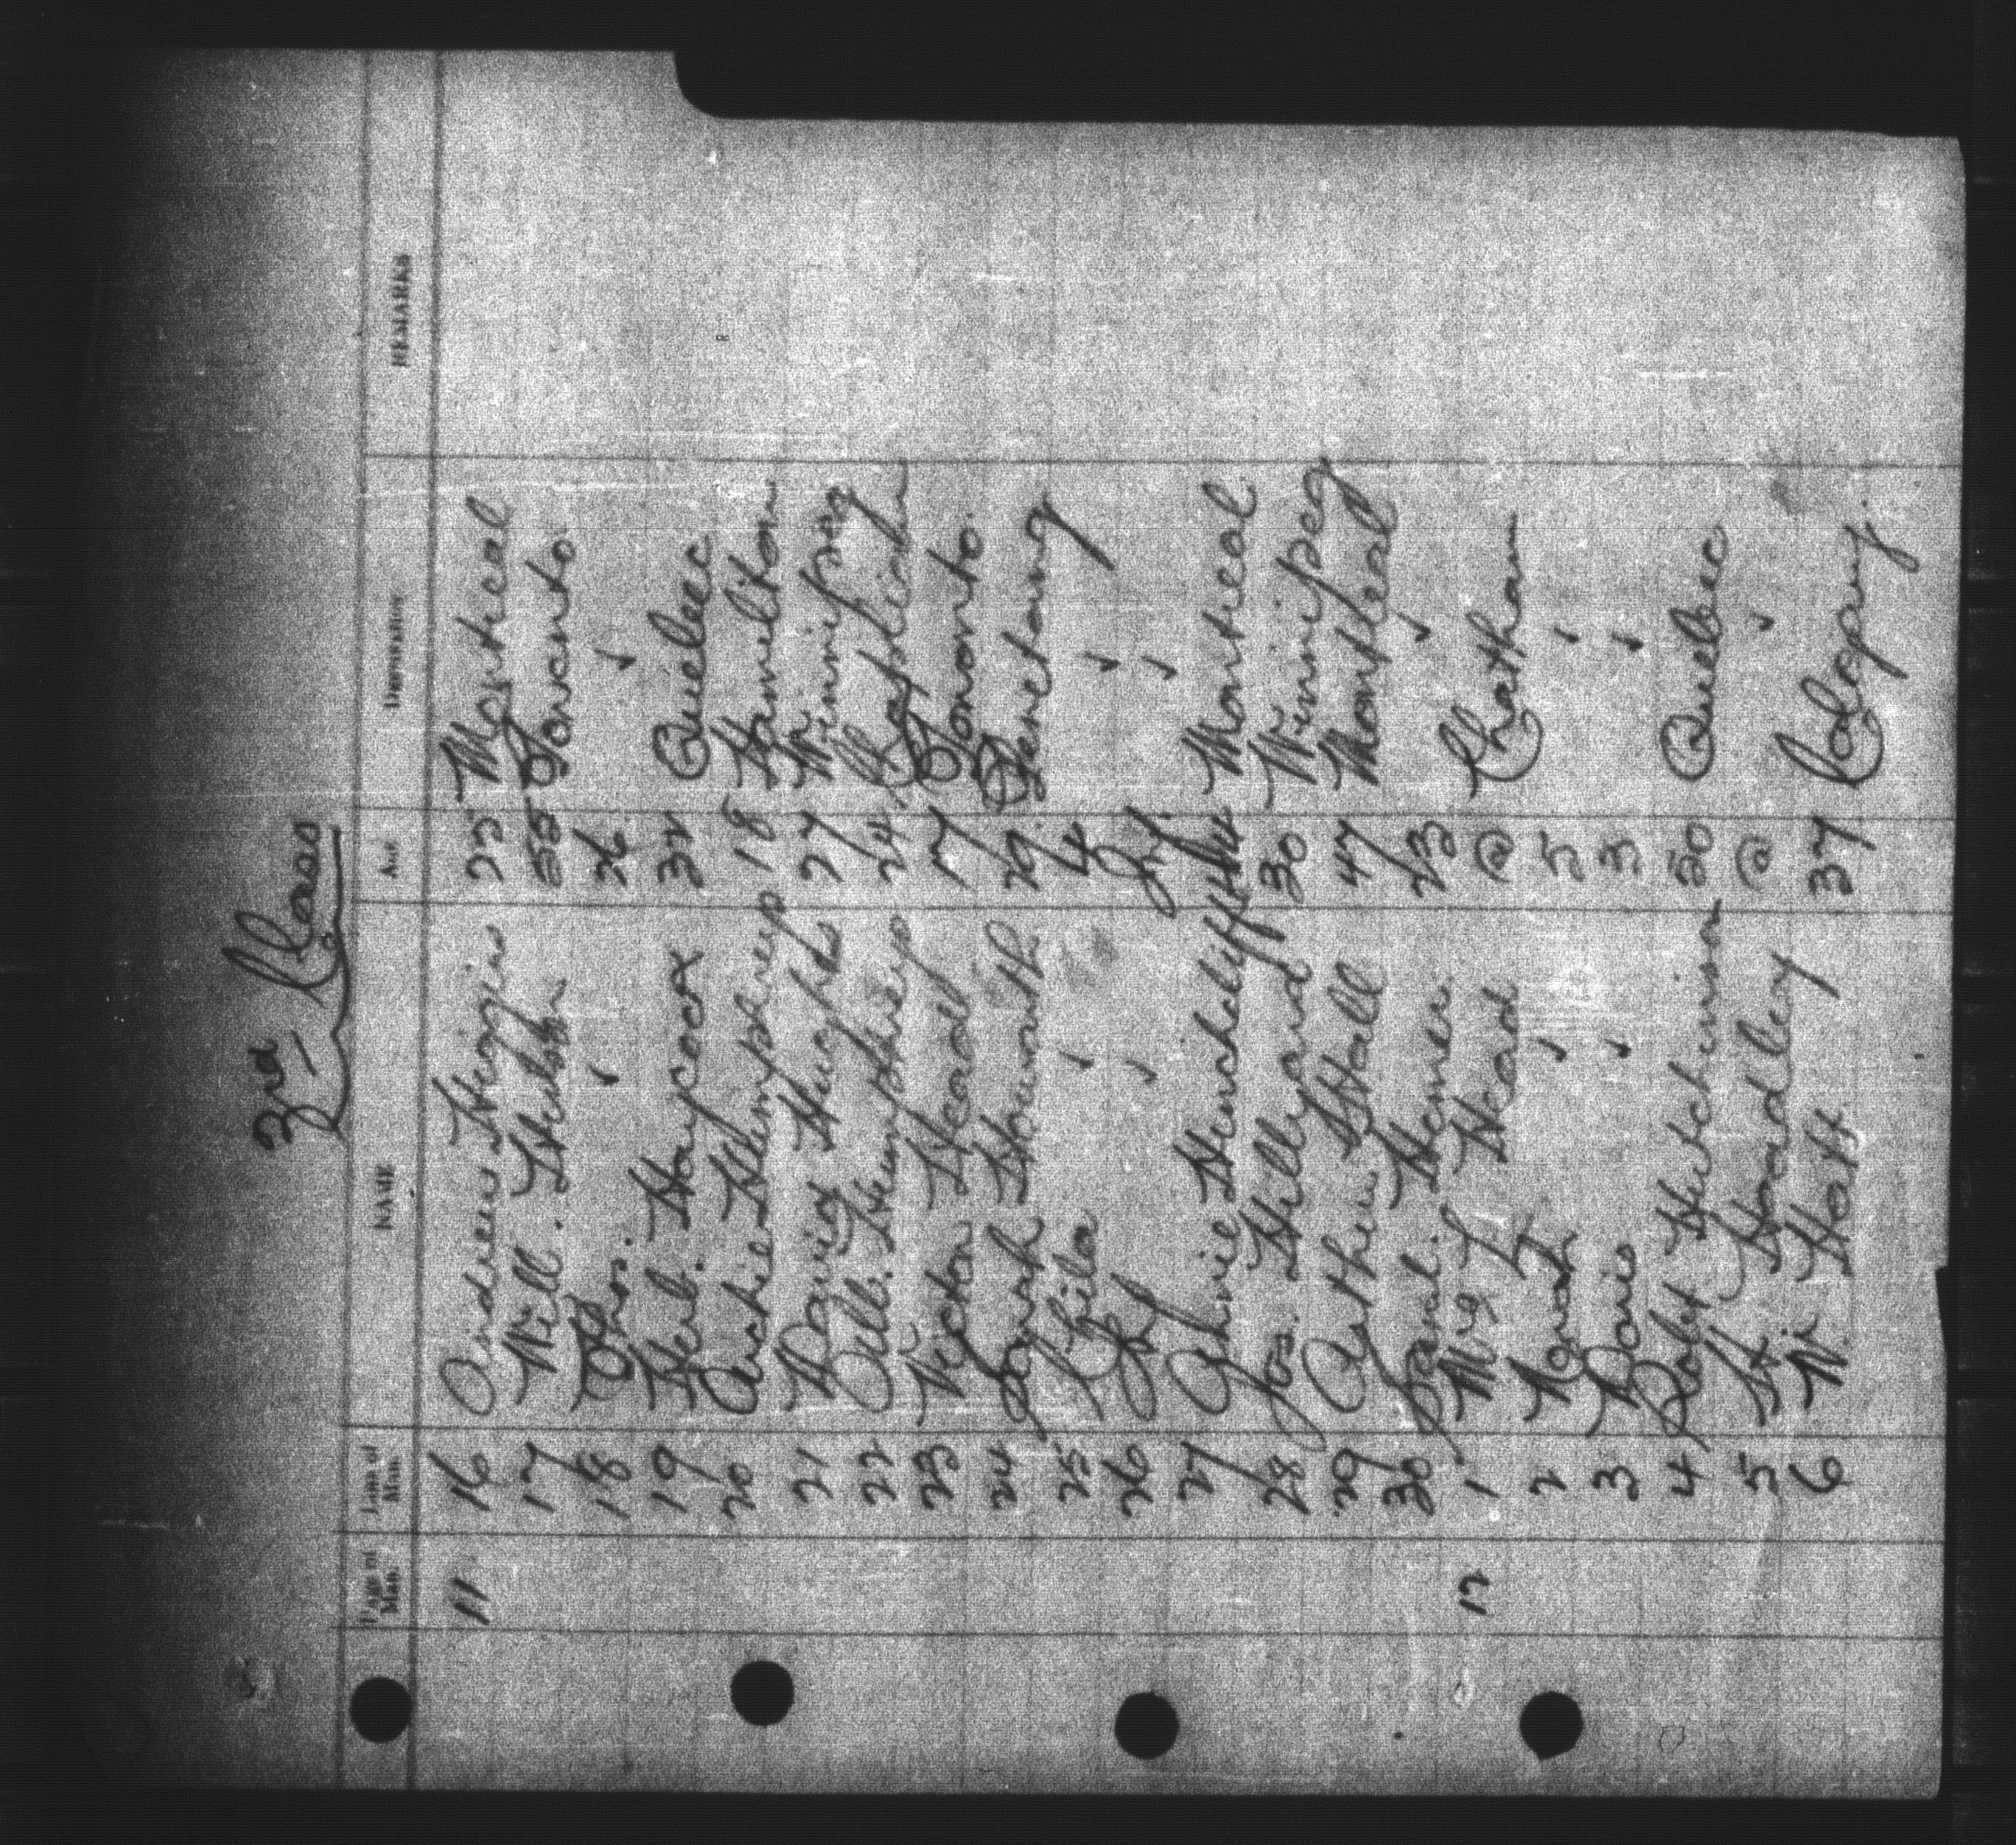 3rd Class
Page of Man. Line of Man. NAME AGE DESTINATION REMARKS
11 16 Andrew Higgins 25 Montreal
17 Will. 55 Toronto
18 Thos. ✓ 26 ✓
19 Herb. Haycocx 32 Quebec
20 Archie Humphreys 18 Hamilton
21 David Hughes 27 Winnipeg
22 Alb. Humphries 24
23 Victor Head 17 Toronto.
24 Howorth 29 Penetang
25 ✓ 4 ✓
26 Inf ✓ Inf. ✓
27 Annie Henchcliffe 44 Montreal
28 Jos. Hillyard 30 Winnipeg
29 Arthur Hall 47 Montreal
30 Saml. Homer 23 ✓
12 1 Mrs L Head @ Chatham
2 Norah ✓ 5 ✓
3 Doris ✓ 3 ✓
4 Robt Hutchinson 20 Quebec
5 Hy Hoadley @ ✓
6 W. Hatt 37 Calgary.